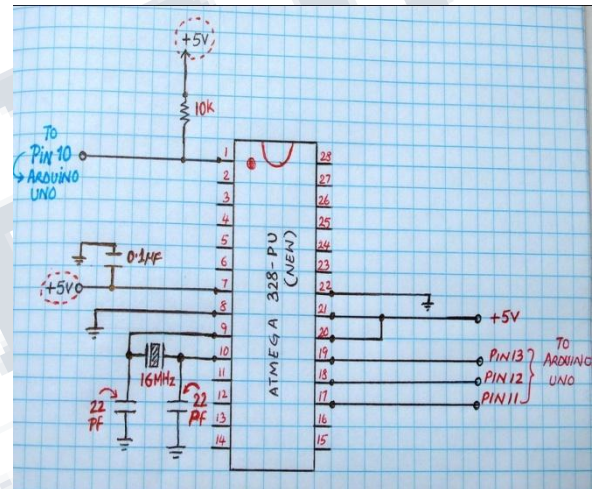 +5V
10K
TO
PIN 10
ARDUINO
UNO
0.1µF
+5V
1
2
3
4
5
6
7
8
9
10
11
12
13
14
ATMEGA 328-PU
(NEW)
28
27
26
25
24
23
22
21
20
19
18
17
16
15
16MHz
22
PF
22
PF
+5V
PIN13
PIN12
PIN11
TO
ARDUINO
UNO